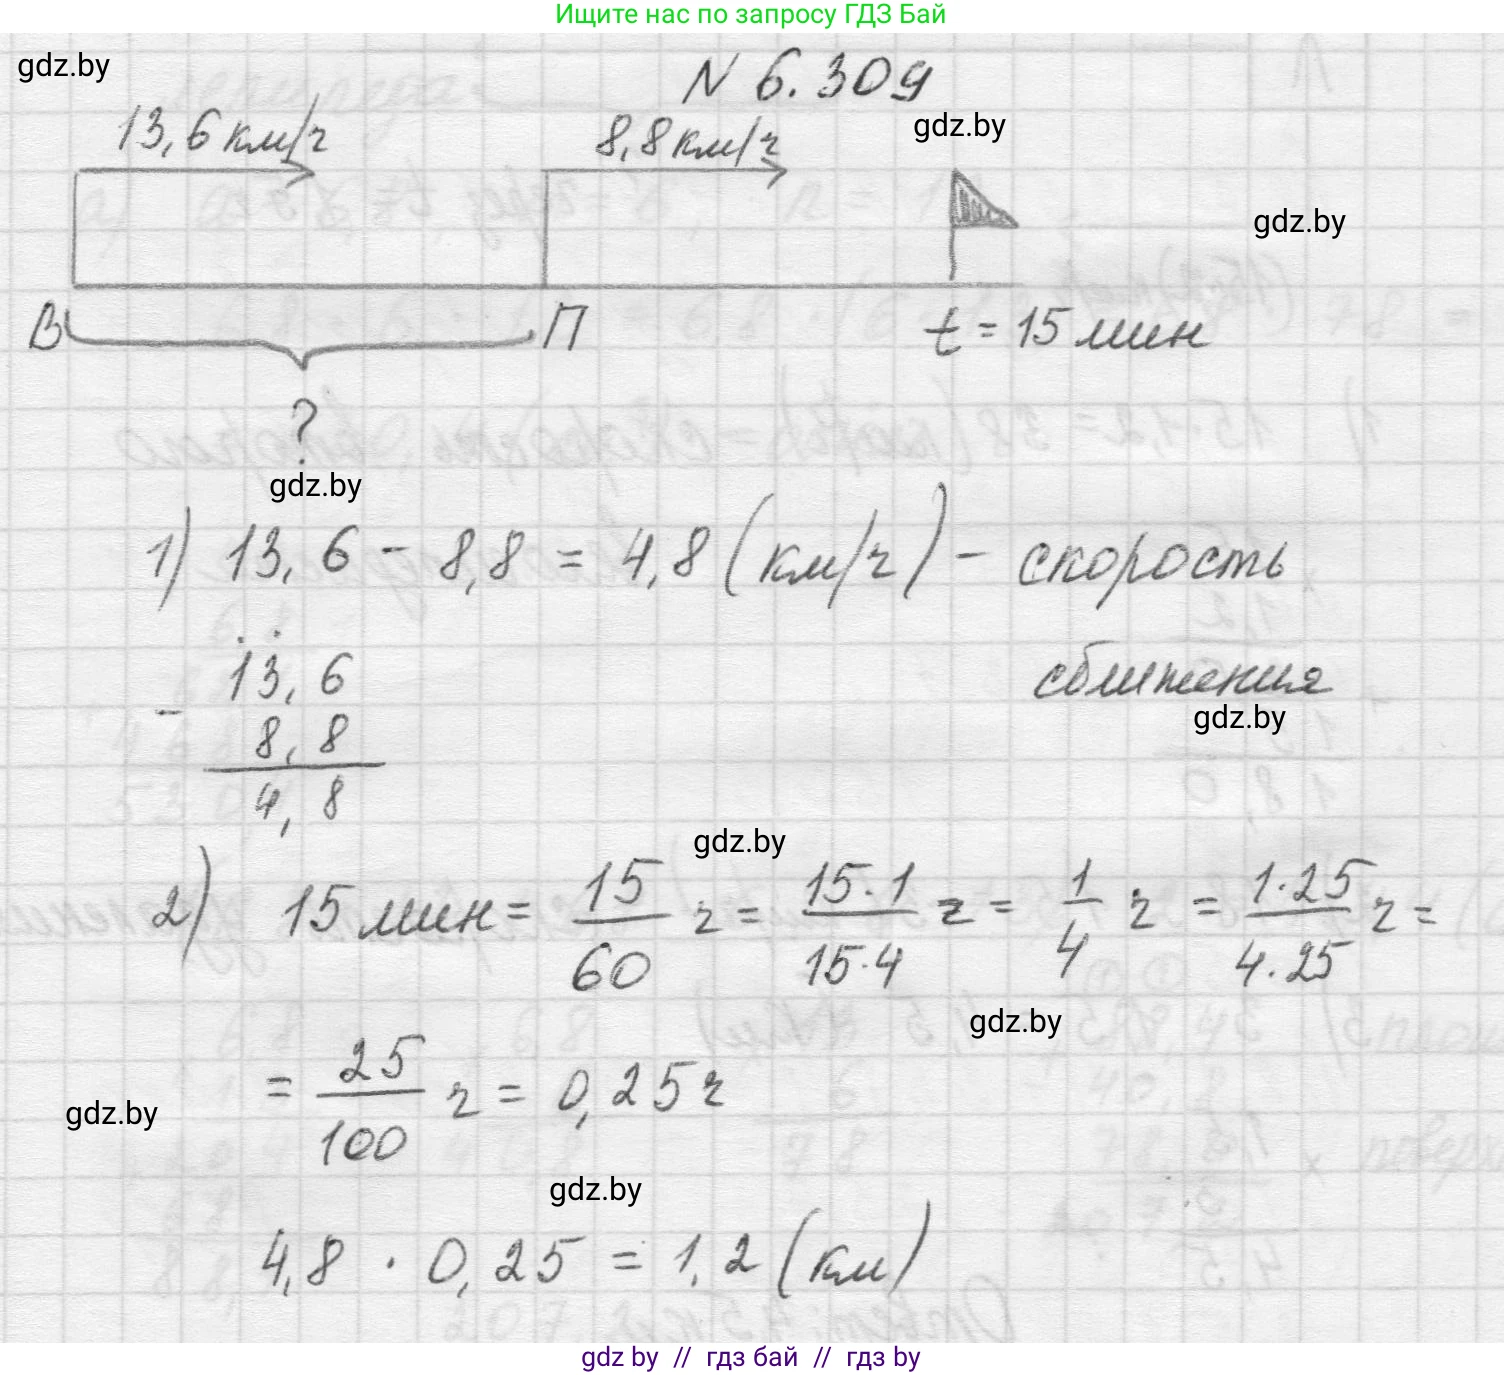 Ищите нас по запросу ГДЗ Бай
gdz.by
N 6.309
13,6 км/ч
8,8 км/ч
gdz.by
gdz.by
В
П
t = 15 мин
?
gdz.by
1) 13,6 - 8,8 = 4,8 (км/ч) - скорость
сближения
13,6
-
8,8
4,8
gdz.by
gdz.by
2) 15 мин = 15/60 ч = 15·1/15·4 ч = 1/4 ч = 1·25/4·25 ч =
gdz.by
= 25/100 ч = 0,25 ч
gdz.by
gdz.by
4,8 · 0,25 = 1,2 (км)
gdz by // гдз бай // гдз by